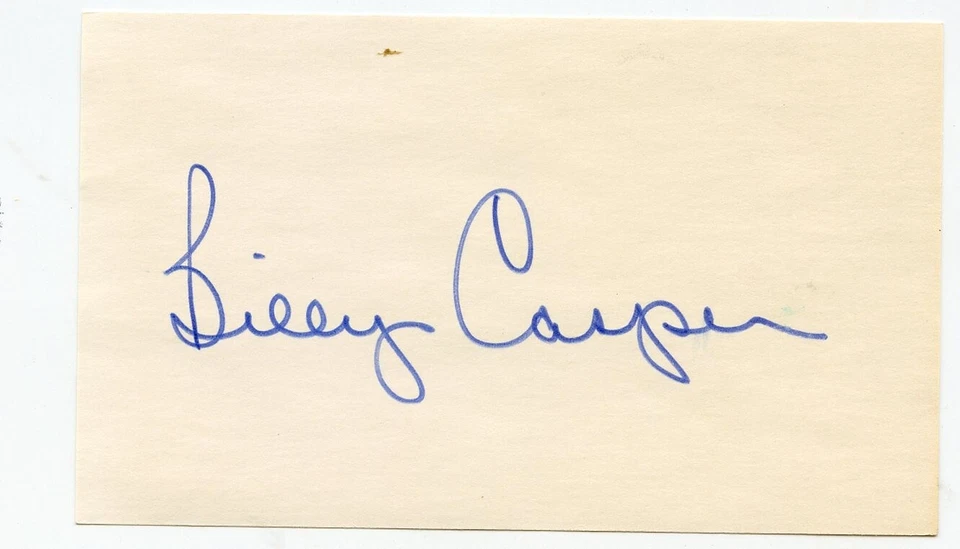 Billy Casper